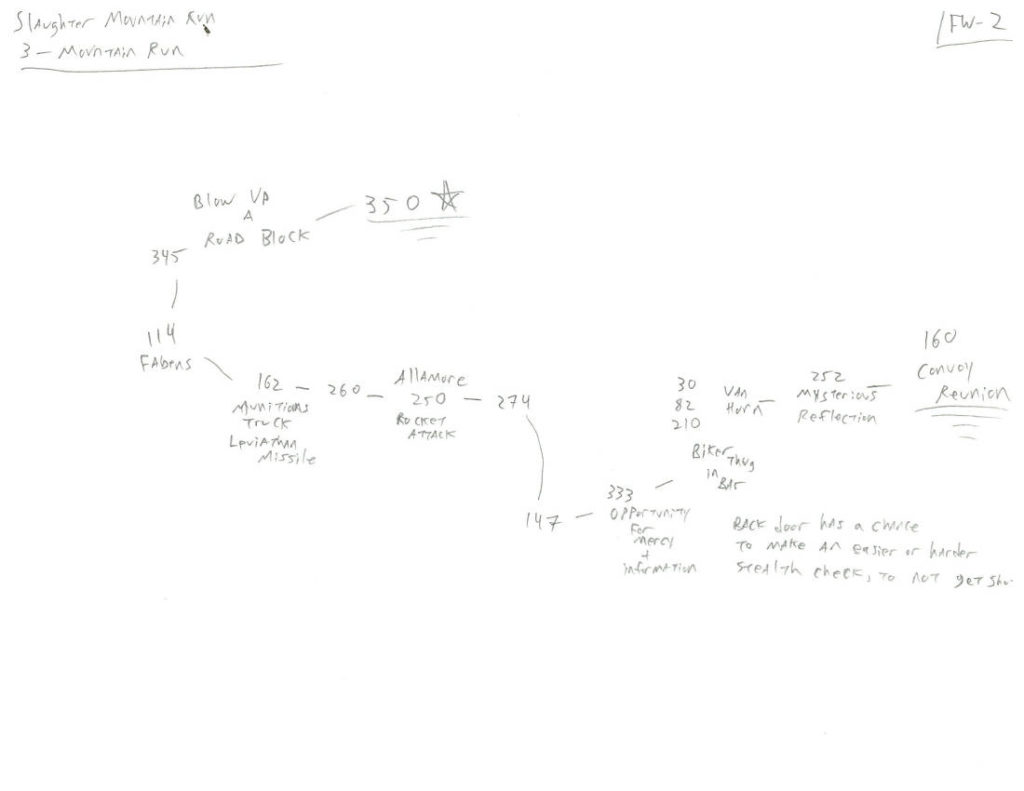 Slaughter Mountain Run
3 – Mountain Run
FW-2
Blow Up
A
Road Block
350
345
114
Fabens
162
Munitions
Truck
Leviathan
Missile
260
Allamore
250
Rocket
Attack
274
147
333
Opportunity
For
Mercy
+
information
30
82
210
Van
Horn
Biker
Thug
in
Bar
252
Mysterious
Reflection
160
Convoy
Reunion
Back door has a chance
To make an easier or harder
Stealth check, to not get